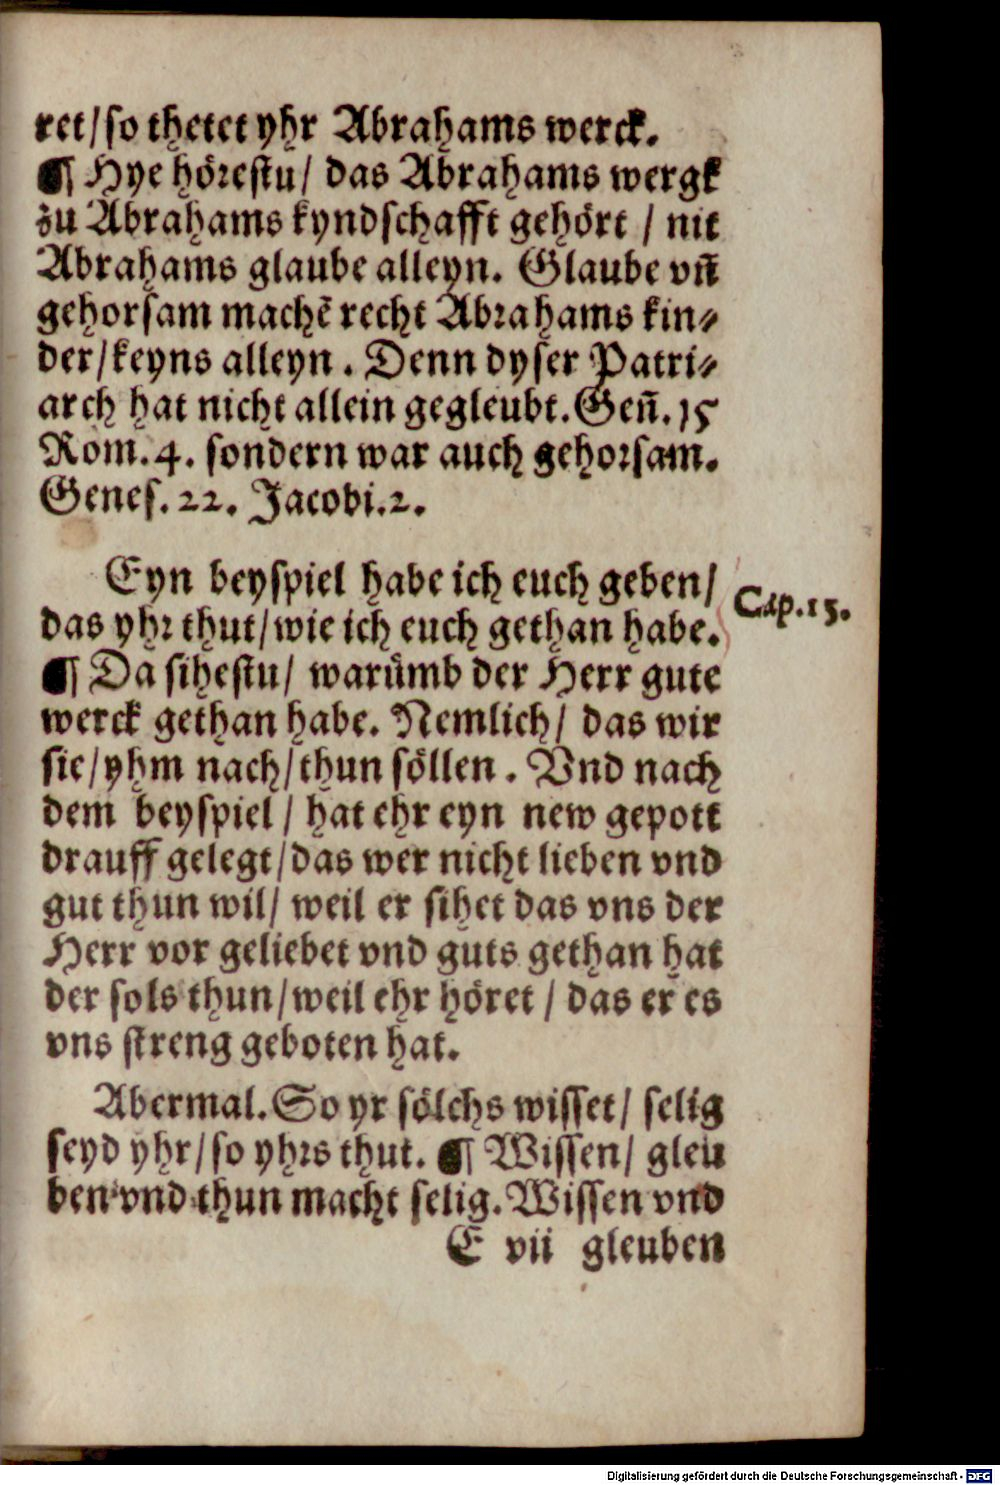 ret/so thetet yhr Abrahams werck.
¶ Hye hörestu/ das Abrahams wergk
zu Abrahams kyndschafft gehört / nit
Abrahams glaube alleyn. Glaube vn̄
gehorsam machē recht Abrahams kin⸗
der/keyns alleyn . Denn dyser Patri⸗
arch hat nicht allein gegleubt. Gen̄. 15
Rom. 4. sondern war auch gehorsam.
Genes. 22. Jacobi. 2.
Eyn beyspiel habe ich euch geben/
das yhr thut/wie ich euch gethan habe.
Cap. 13.
¶ Da sihestu/ warůmb der Herr gute
werck gethan habe. Nemlich/ das wir
sie/yhm nach/thun söllen . Vnd nach
dem beyspiel / hat ehr eyn new gepott
drauff gelegt/das wer nicht lieben vnd
gut thun wil/ weil er sihet das vns der
Herr vor geliebet vnd guts gethan hat
der sols thun/weil ehr höret / das er es
vns streng geboten hat.
Abermal. So yr sölchs wisset/ selig
seyd yhr/so yhrs thut. ¶ Wissen/ gleu
ben vnd thun macht selig. Wissen vnd
E vii gleuben
Digitalisierung gefördert durch die Deutsche Forschungsgemeinschaft - DFG